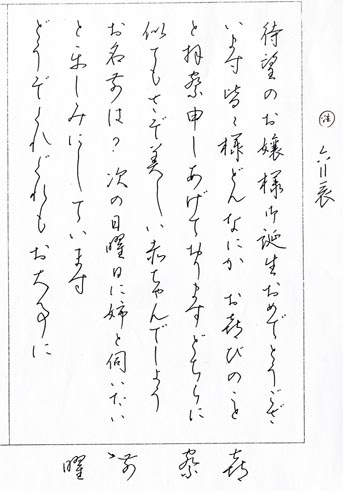 清 六川辰
待望のお嬢様御誕生おめでとうござ
います 皆々様どんなにか お喜びのこと
と拝察申しあげております どちらに
似てもさぞ美しい赤ちゃんでしょう
お名前は? 次の日曜日に姉と伺いたい
と楽しみにしています
どうぞくれぐれもお大事に
喜 察 前 曜